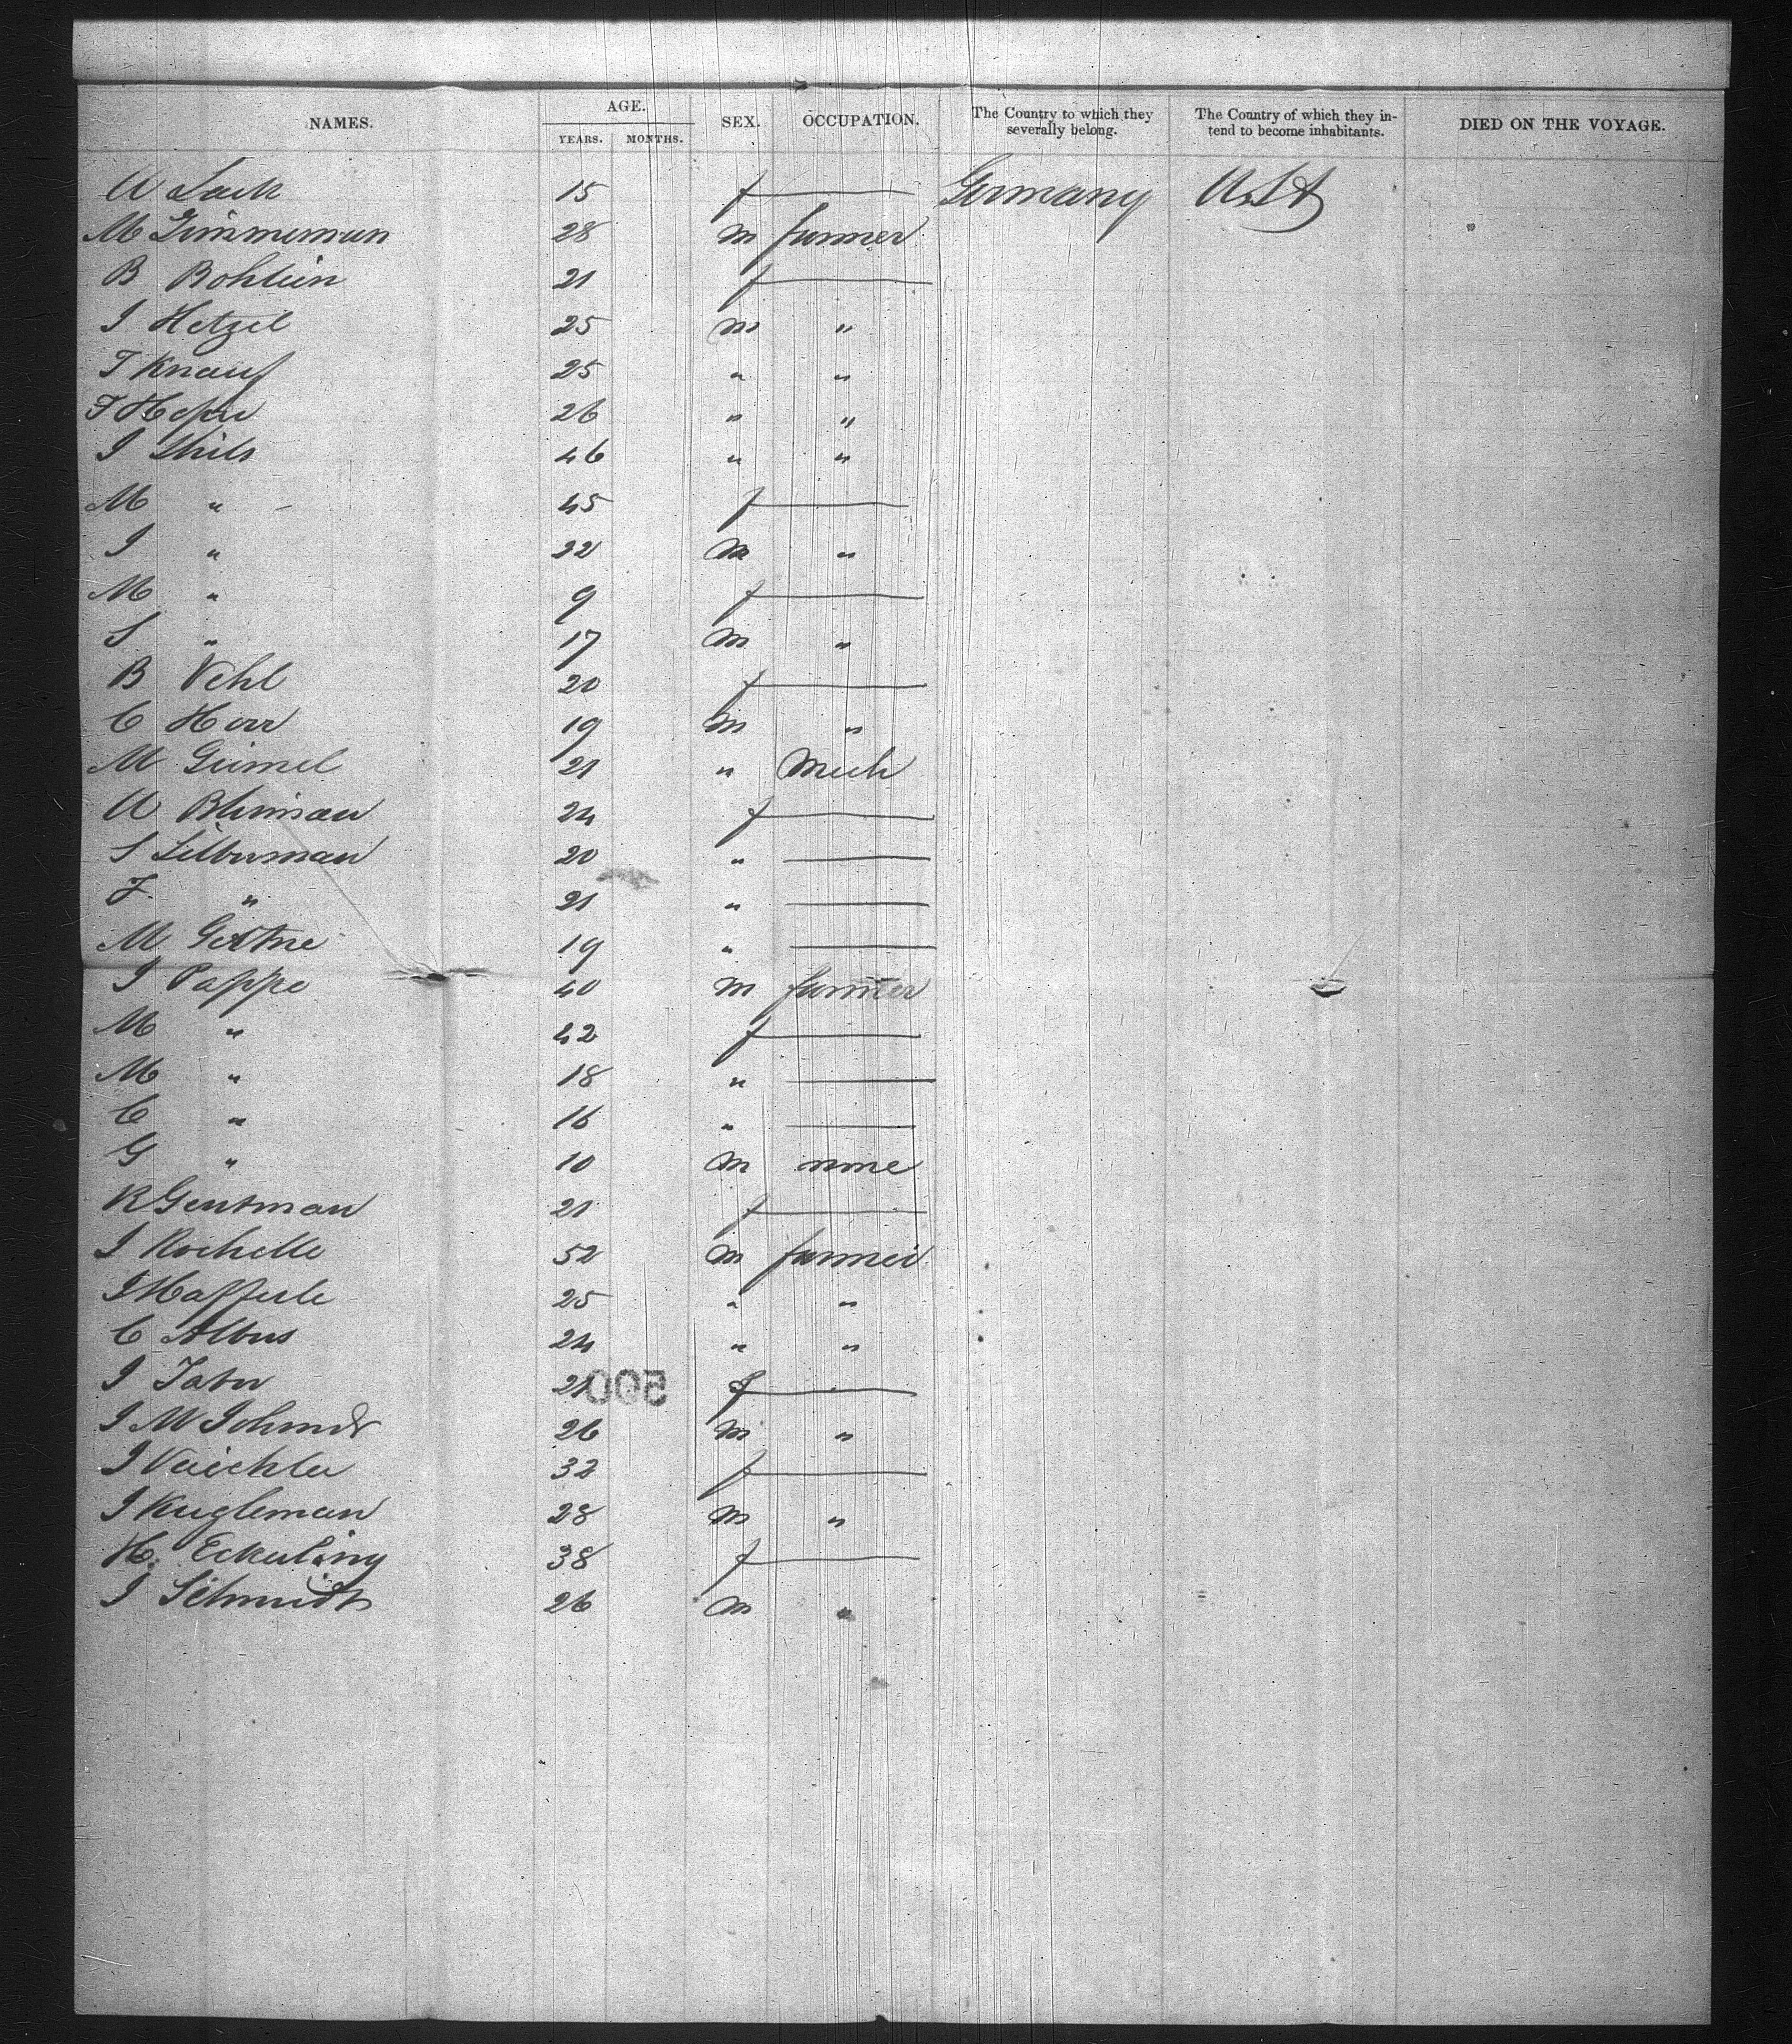 NAMES. AGE. YEARS. MONTHS. SEX. OCCUPATION. The Country to which they severally belong. The Country of which they intend to become inhabitants. DIED ON THE VOYAGE.
A 15 f — Germany U.S.A
M Zimmerman 28 m farmer
B Bohlein 21 f —
J Hetzel 25 m "
T Knauf 25 " "
F 26 " "
J 46 " "
M " 45 f —
J " 22 m "
M " 9 f —
S " 17 m "
B Vehl 20 f —
C Horr 19 m "
M Geimel 21 " Mech
A 24 f —
S Silberman 20 " —
F. " 21 " —
M 19 " —
J Pappe 40 m farmer
M " 42 f —
M " 18 " —
C " 16 " —
G " 10 m none
R Gentman 21 f —
J Rochelle 52 m farmer
J Hafferle 25 " "
C Albus 24 " "
J 21 f —
500
J M Schmdt 26 m "
J 32 f —
J Kugleman 28 m "
H. 38 f —
J Schmidt 26 m "